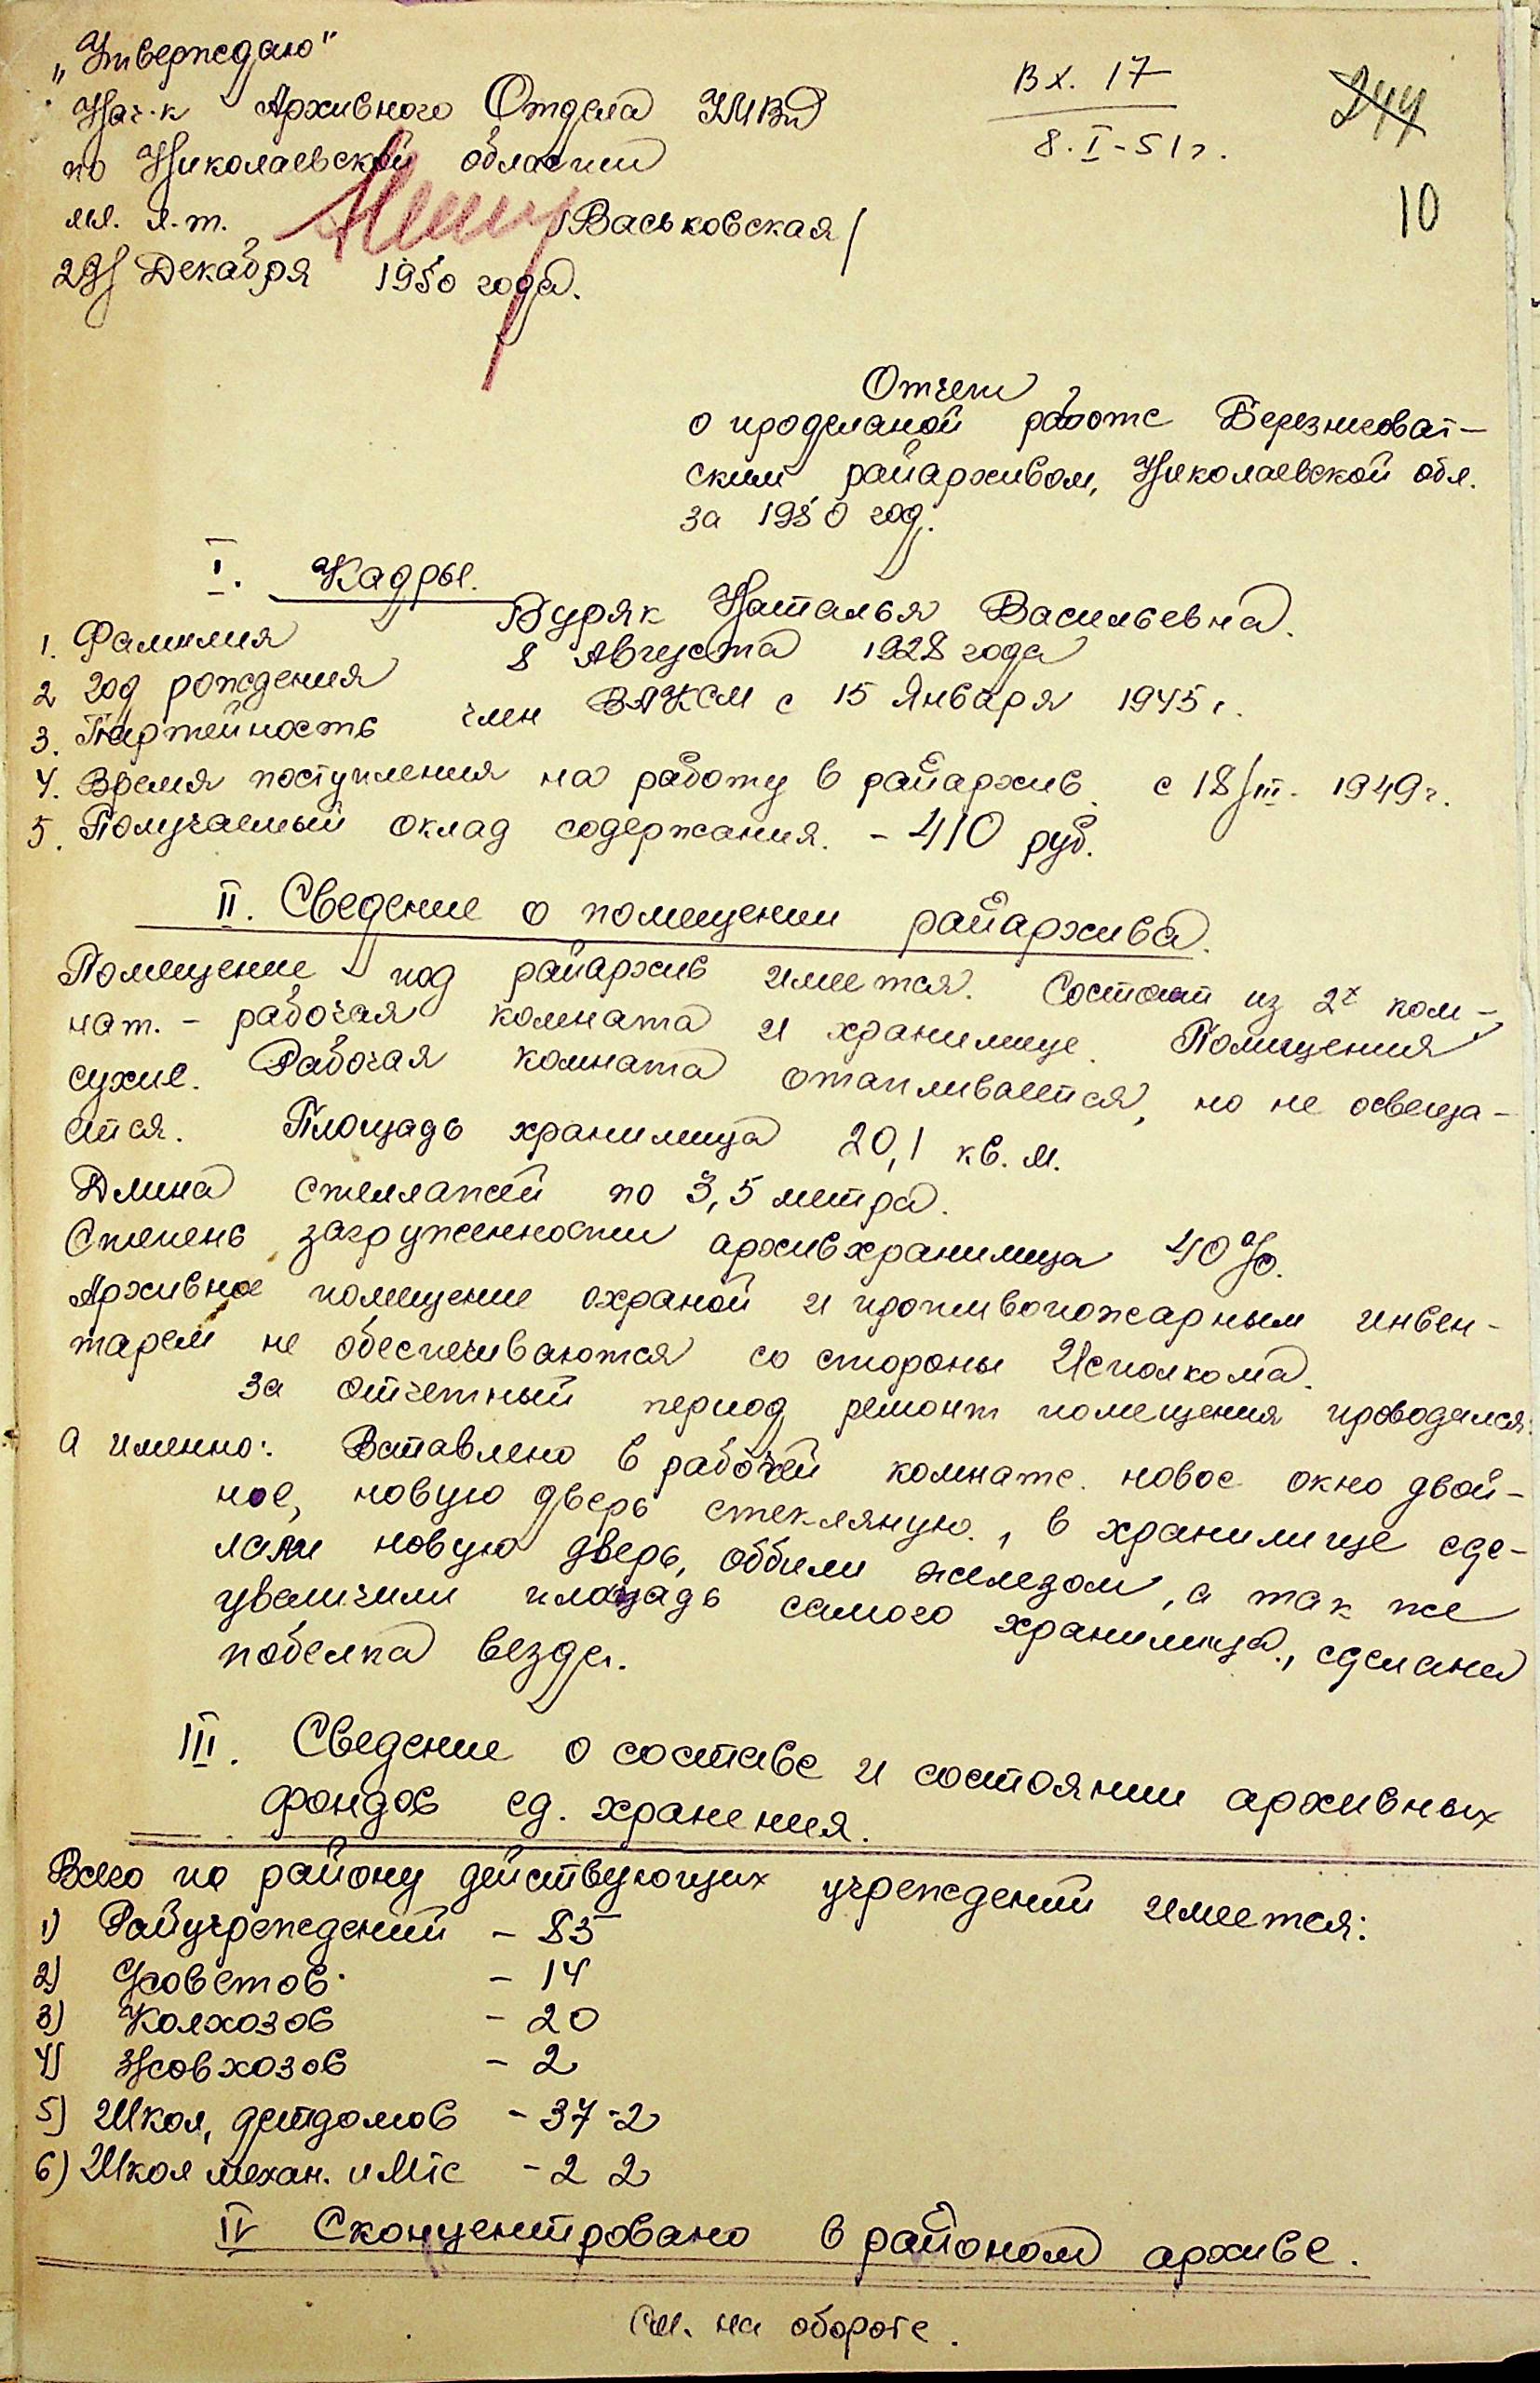 „Утверждаю"
Нач-к Архивного Отдела УМВД
по Николаевской области
мл. л-т. /Васьковская/
29/ Декабря 1950 года.
Вх. 17
8.I-51г.
244
10
Отчет
о проделаной работе Березниговат-
ским райархивом, Николаевской обл.
за 1950 год.
I. Кадры.
1. Фамилия Буряк Наталья Васильевна.
2 Год рождения 8 Августа 1928 года
3. Партейность член ВЛКСМ с 15 Января 1945г.
4. Время поступления на работу в райархив. с 18/III- 1949г.
5. Получаемый оклад содержания. - 410 руб.
II. Сведение о помещении райархива.
Помещение под райархив имеется. Состоит из 2х ком-
нат. - рабочая комната и хранилище. Помещения
сухие. Рабочая комната отапливается, но не освеща-
ется. Площадь хранилища 20,1 кв. м.
Длина стеллажей по 3,5 метра.
Степень загруженности архивхранилища 40%.
Архивное помещение охраной и противопожарным инвен-
тарем не обеспечиваются со стороны Исполкома.
За отчетный период ремонт помещения проводился:
а именно: Вставлено в рабочей комнате новое окно двой-
ное, новую дверь стекляную, в хранилище сде-
лали новую дверь, оббили железом, а так же
увеличили площадь самого хранилища, сделана
побелка везде.
III. Сведение о составе и состоянии архивных
фондов ед. хранения.
Всего по району действующих учреждений имеется:
1) Райучреждений - 85
2) С/советов - 14
3) Колхозов - 20
4) Совхозов - 2
5) Школ, детдомов - 37-2
6) Школ механ. и МТС - 2 2
IV Сконцентровано в районом архиве.
См. на обороте.